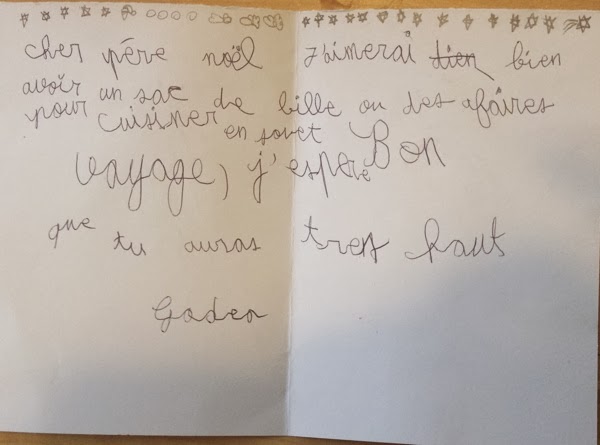 cher père noël j'aimerai ~~tien~~ bien
avoir un sac de bille ou des afaires
pour cuisiner en sovet Bon
Vayage) j'espère
que tu auras tres haut